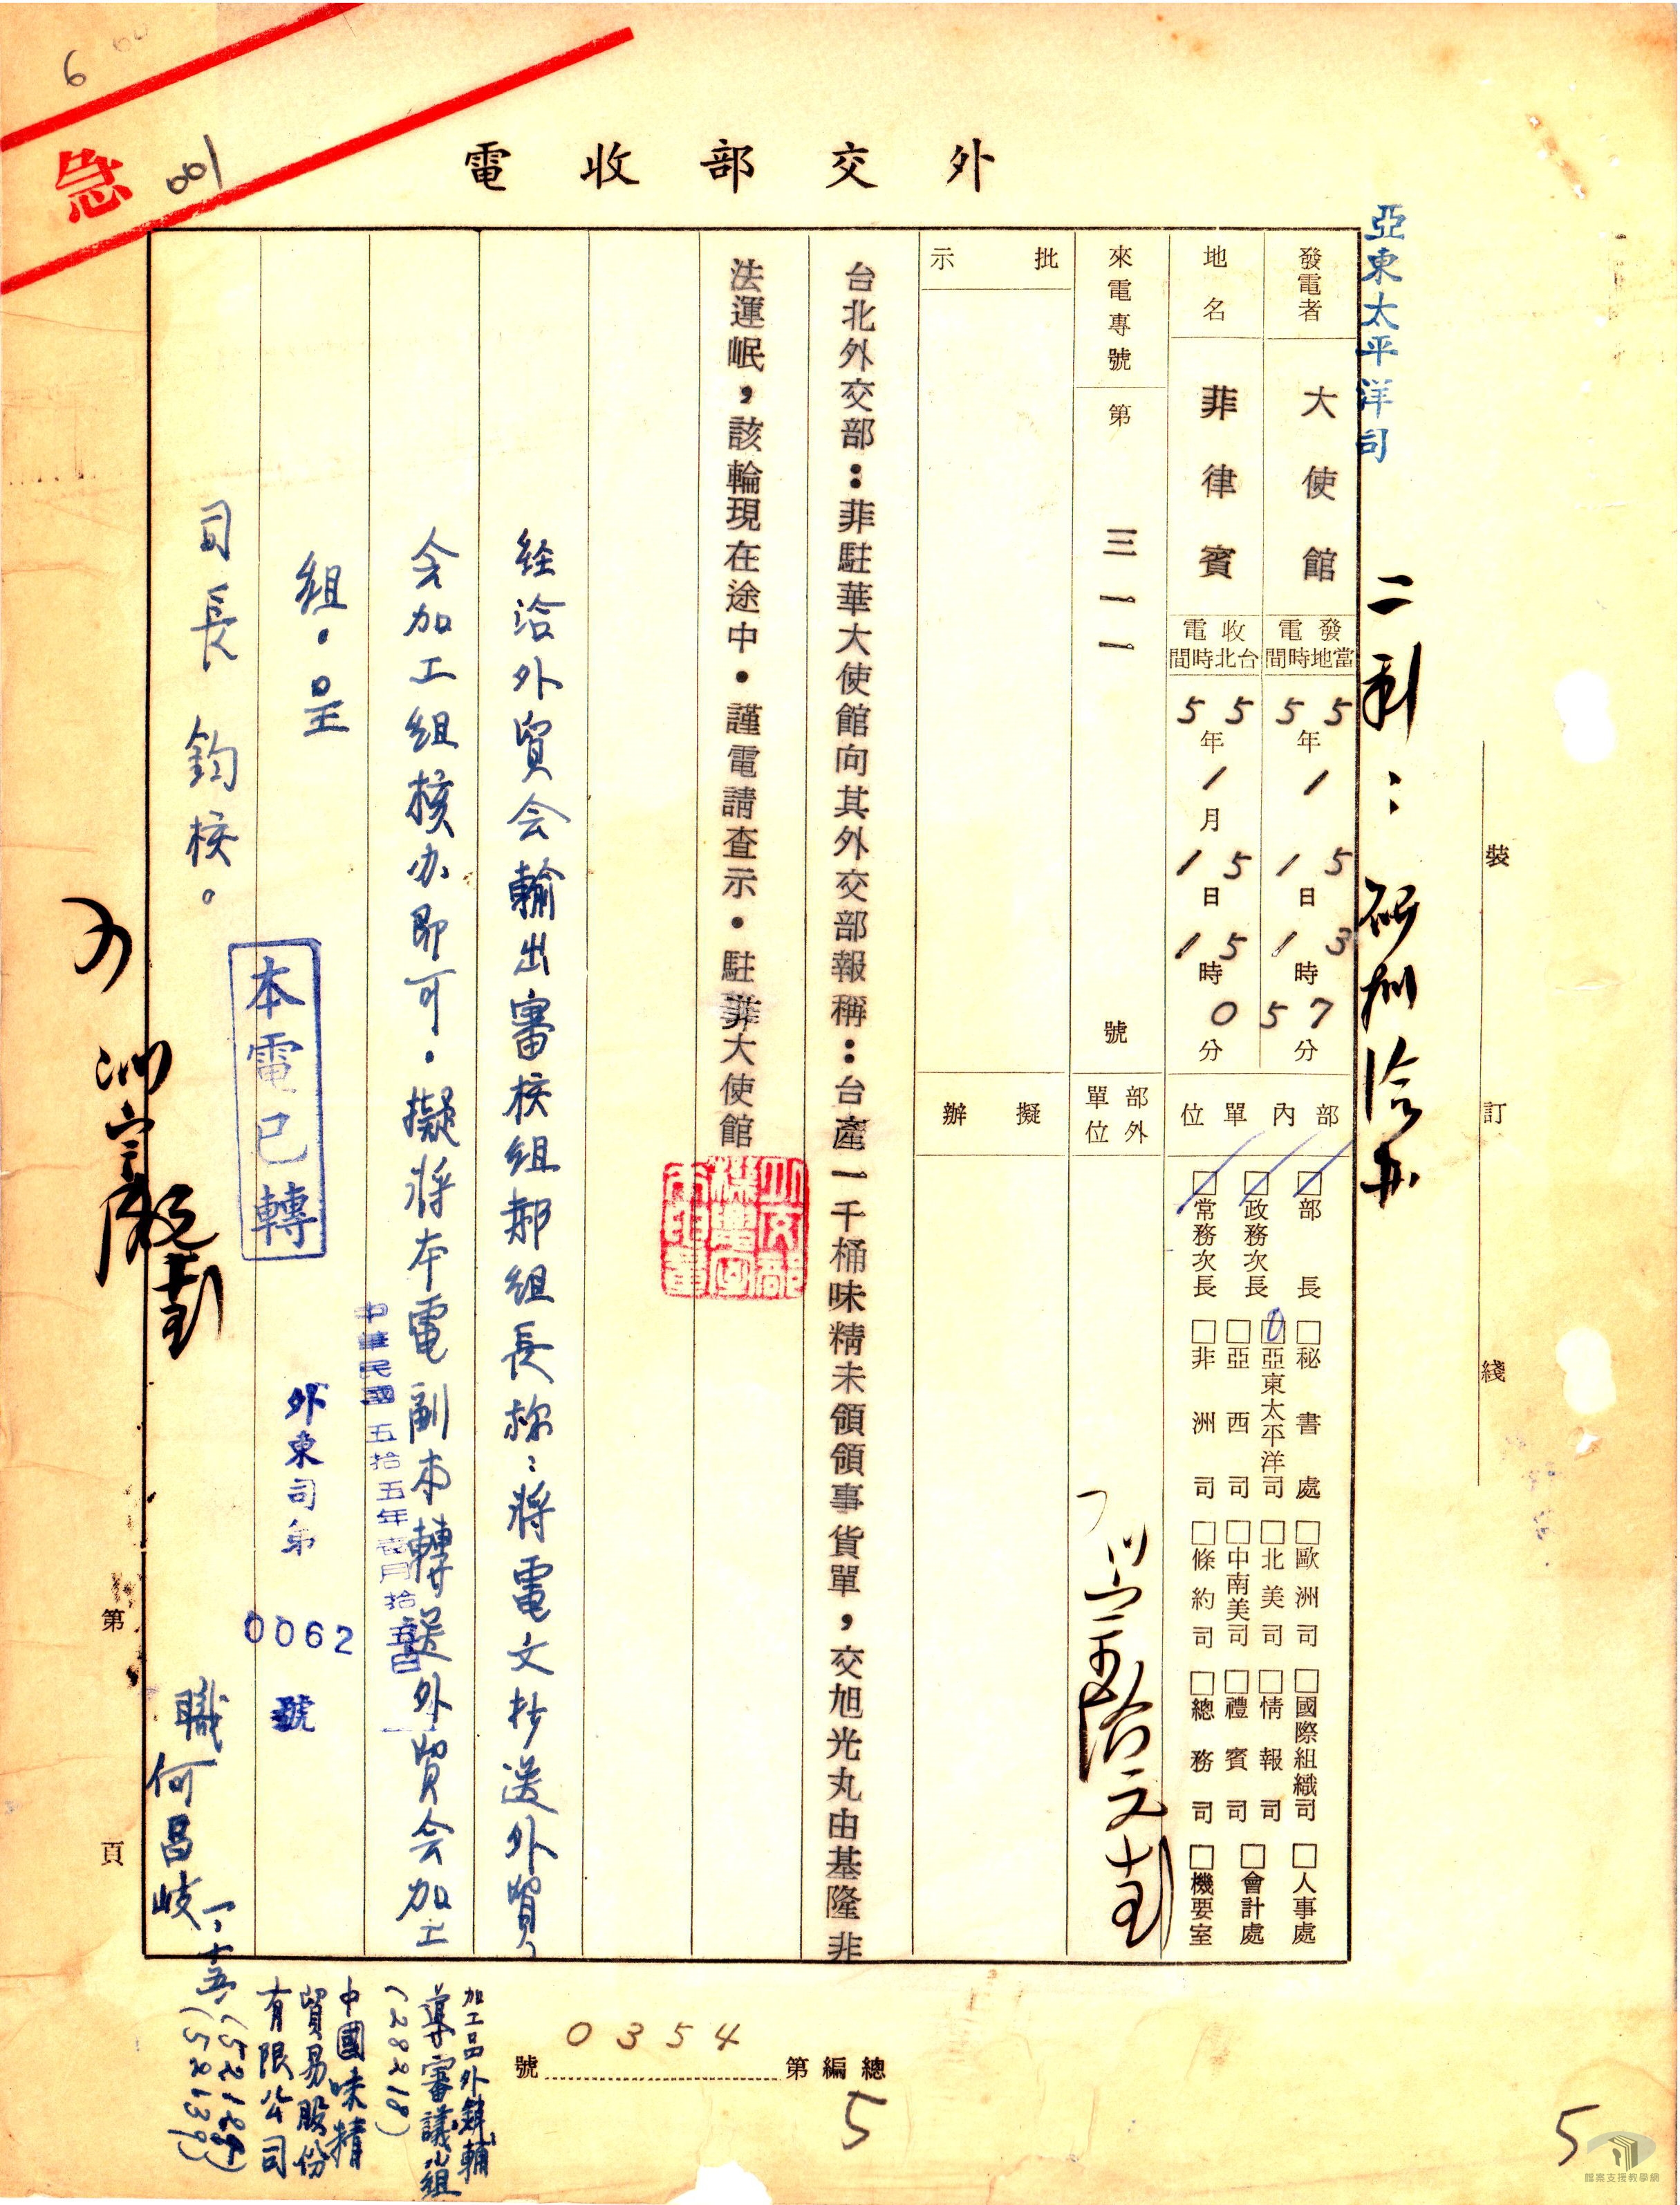 急
6
100
外交部收電
亞東太平洋司
發電者 大使館
發電當地時間 55年1月15日13時57分
地名 菲律賓
收電台北時間 55年1月15日15時0分
來電專號 第三一一號
部內單位
□部長 □秘書處 □歐洲司 □國際組織司 □人事處
□政務次長 □亞東太平洋司 □北美司 □情報司 □會計處
□亞西司 □中南美司 □禮賓司
□常務次長 □非洲司 □條約司 □總務司 □機要室
部外單位
批示
擬辦
台北外交部：菲駐華大使館向其外交部報稱：台產一千桶味精未領領事貨單，交旭光丸由基隆非
法運岷，該輪現在途中．謹電請查示．駐菲大使館
經洽外貿会輸出審核組鄭組長稱：將電文抄送外貿
会加工組核办即可．擬將本電副本轉送外貿会加工
組．呈
司長 鈞核。
職何昌岐
本電已轉
中華民國五拾五年壹月拾五日
外東司第0062號
加工品外銷輔
導審議小組
(28218)
中國味精
貿易股份
有限公司
總編第0354號
第 頁
裝
訂
綫
5
5
檔案支援教學網